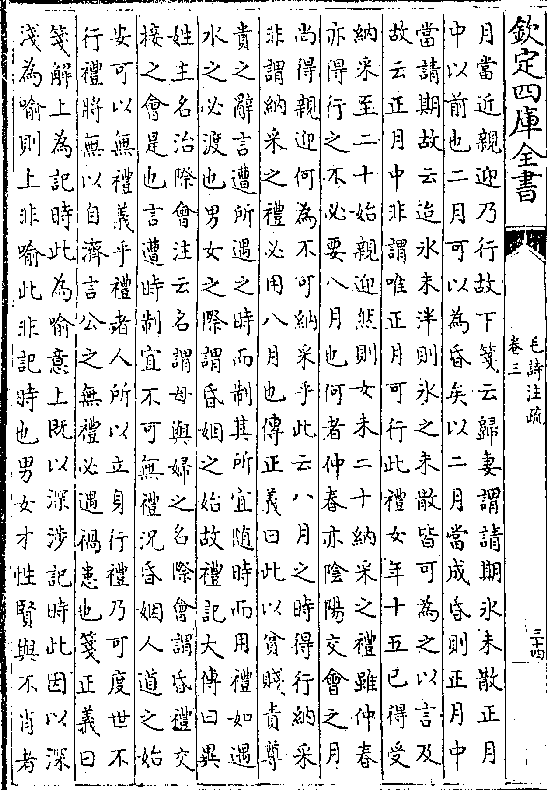 欽定四庫全書
毛詩注疏
卷三
三十四
月當近親迎乃行故下箋云歸妻謂請期冰未散正月
中以前也二月可以為昏矣以二月當成昏則正月中
當請期故云迨冰未泮則冰之未散皆可為之以言及
故云正月中非謂唯正月可行此禮女年十五已得受
納采至二十始親迎然則女未二十納采之禮雖仲春
亦得行之不必要八月也何者仲春亦陰陽交會之月
尚得親迎何為不可納采乎此云八月之時得行納采
非謂納采之禮必用八月也傳正義曰此以貧賤責尊
貴之辭言遭所遇之時而制其所宜隨時而用禮如遇
水之必渡也男女之際謂昏姻之始故禮記大傳曰異
姓主名治際會注云名謂母與婦之名際會謂昏禮交
接之會是也言遭時制宜不可無禮況昏姻人道之始
安可以無禮義乎禮者人所以立身行禮乃可度世不
行禮將無以自濟言公之無禮必遇禍患也箋正義曰
箋解上為記時此為喻意上既以深涉記時此因以深
淺為喻則上非喻此非記時也男女才性賢與不肖者